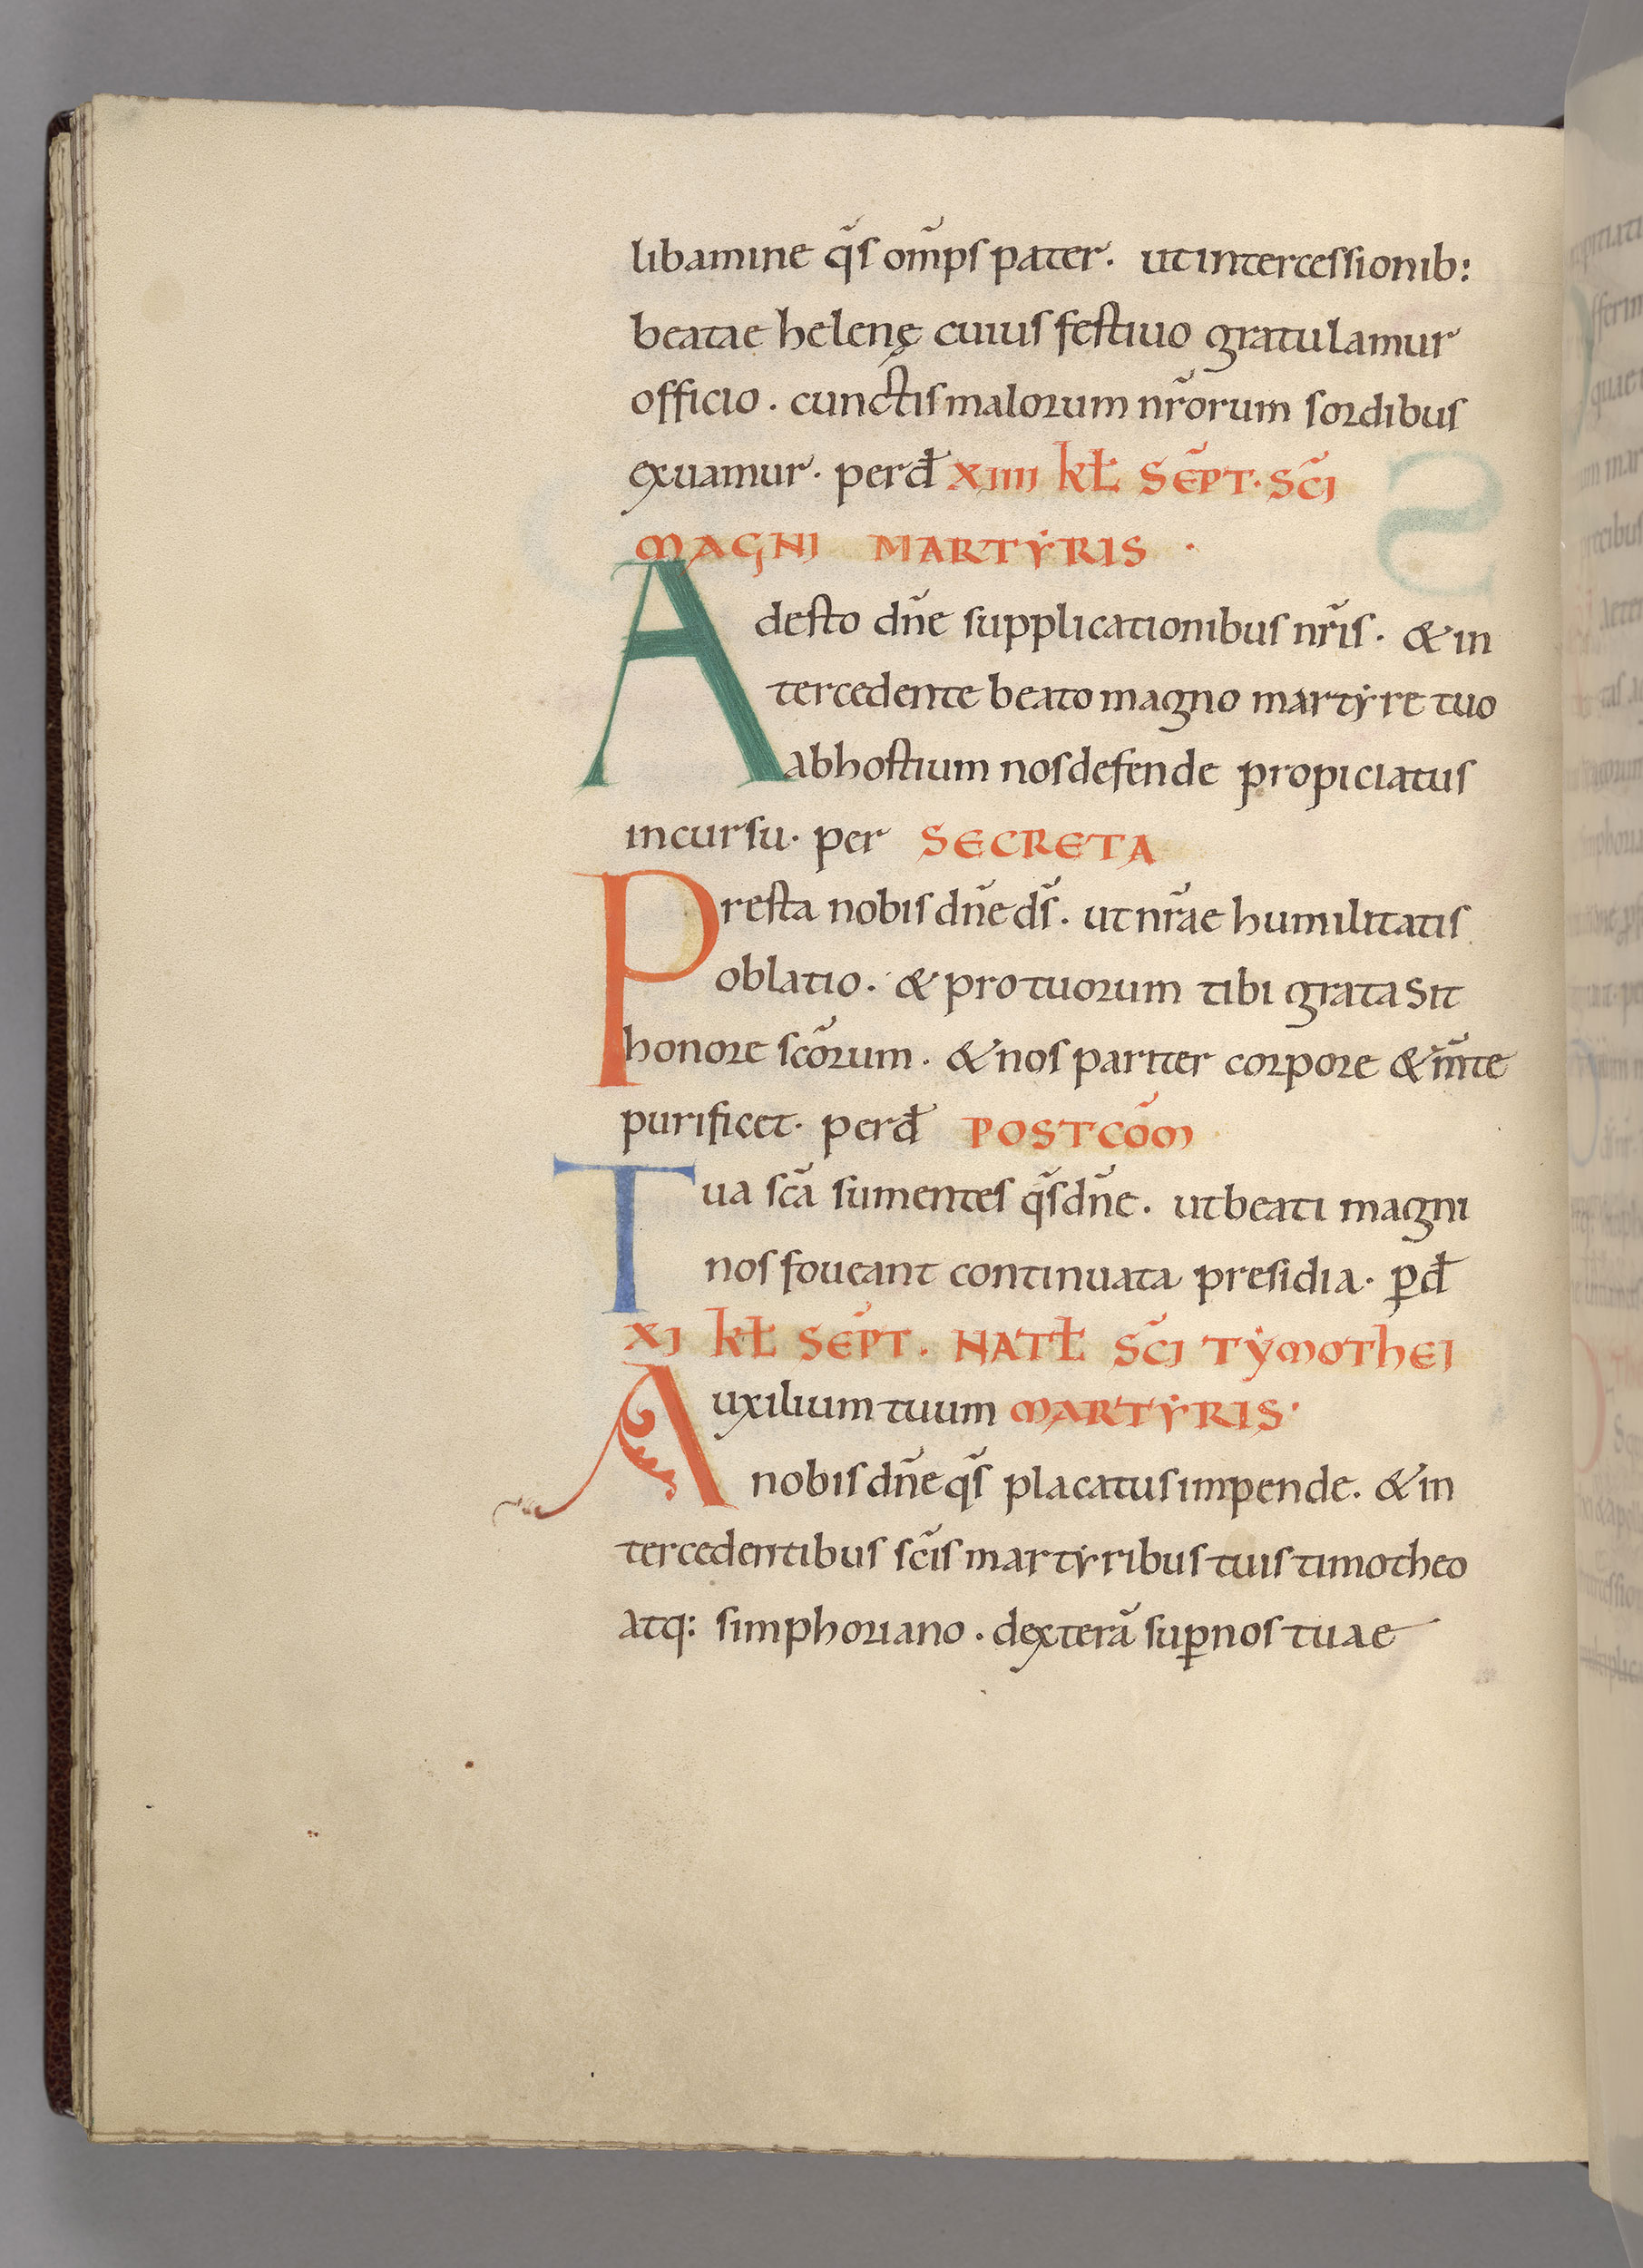 libamine q̃s om̃ps pater. ut intercessionib:
beatae helenę cuius festiuo gratulamur
officio. cunctis malorum nr̃orum sordibus
exuamur. per đ XIIII kł SEP̃T. SC̃I
MAGNI MARTẎRIS .
Adesto dñe supplicationibus nr̃is. & in
tercedente beato magno martẏre tuo
ab hostium nos defende propiciatus
incursu. per SECRETA
Presta nobis dñe ds̃. ut nr̃ae humilitatis
oblatio. & pro tuorum tibi grata sit
honore scõrum. & nos pariter corpore & m̃te
purificet. per đ POSTCOM̃
Tua scã sumentes q̃s dñe. ut beati magni
nos foueant continuata presidia. p̱ đ
XI kł SEP̃T. NATƚ SC̃I TẎMOThEI
Auxilium tuum MARTẎRIS.
nobis dñe q̃s placatus impende. & in
tercedentibus sc̃is martẏribus tuis timotheo
atq: simphoriano. dexterã sup̱ nos tuae